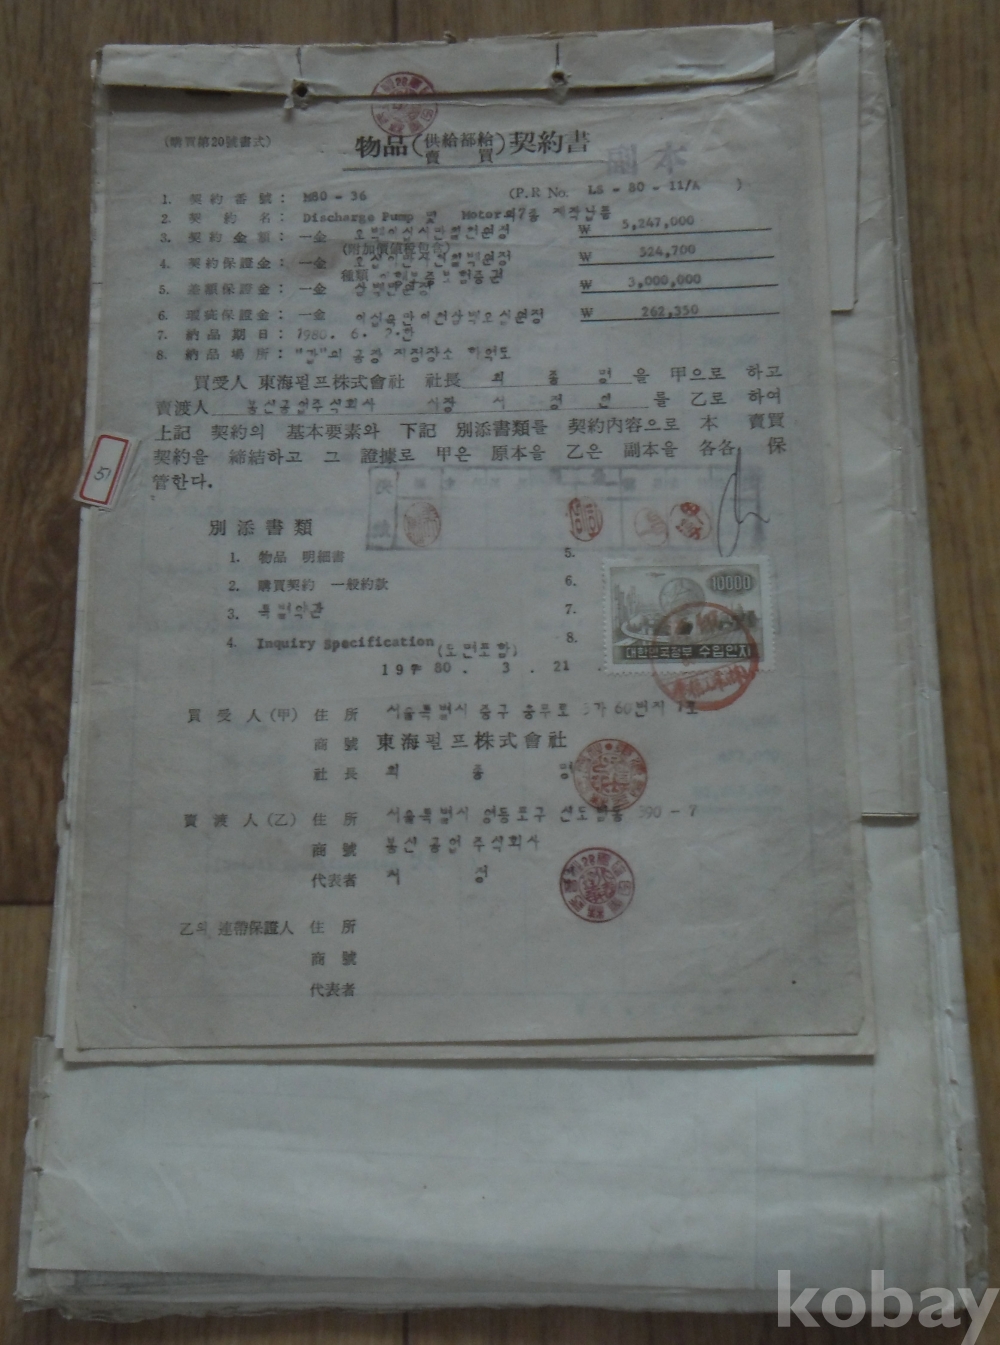 (購買第20號書式)
物品(供給都給賣買)契約書
1. 契約番號: M80 - 36 (P.R No. LS - 80 - 11/A )
2. 契約名: Discharge Pump 및 Motor외7종 제작납품
3. 契約金額: 一金 오백이십사만칠천원정 ₩ 5,247,000
(附加價値稅包含)
4. 契約保證金: 一金 ₩ 524,700
種類
5. 差額保證金: 一金 삼백만원정 ₩ 3,000,000
6. 瑕疵保證金: 一金 이십육만이천삼백오십원정 ₩ 262,350
7. 納品期日: 1980. 6. 7.한
8. 納品場所: "갑"의 공장 지정장소 하역도
買受人 東海펌프株式會社 社長 최종명 을 甲으로 하고
賣渡人 봉신공업주식회사 사장 서정 를 乙로 하여
上記 契約의 基本要素와 下記 別添書類를 契約內容으로 本 賣買
契約을 締結하고 그 證據로 甲은 原本을 乙은 副本을 各各 保
管한다.
51
別添書類
1. 物品 明細書 5.
2. 購買契約 一般約款 6.
3. 특별약관 7.
4. Inquiry Specification (도면포함) 8.
10000
대한민국정부 수입인지
1980. 3. 21.
買受人(甲) 住所 서울특별시 중구 충무로 5가 60번지 1호
商號 東海펌프株式會社
社長 최종명
賣渡人(乙) 住所 서울특별시 영등포구 590 - 7
商號 봉신공업주식회사
代表者 서정
乙의 連帶保證人 住所
商號
代表者
kobay